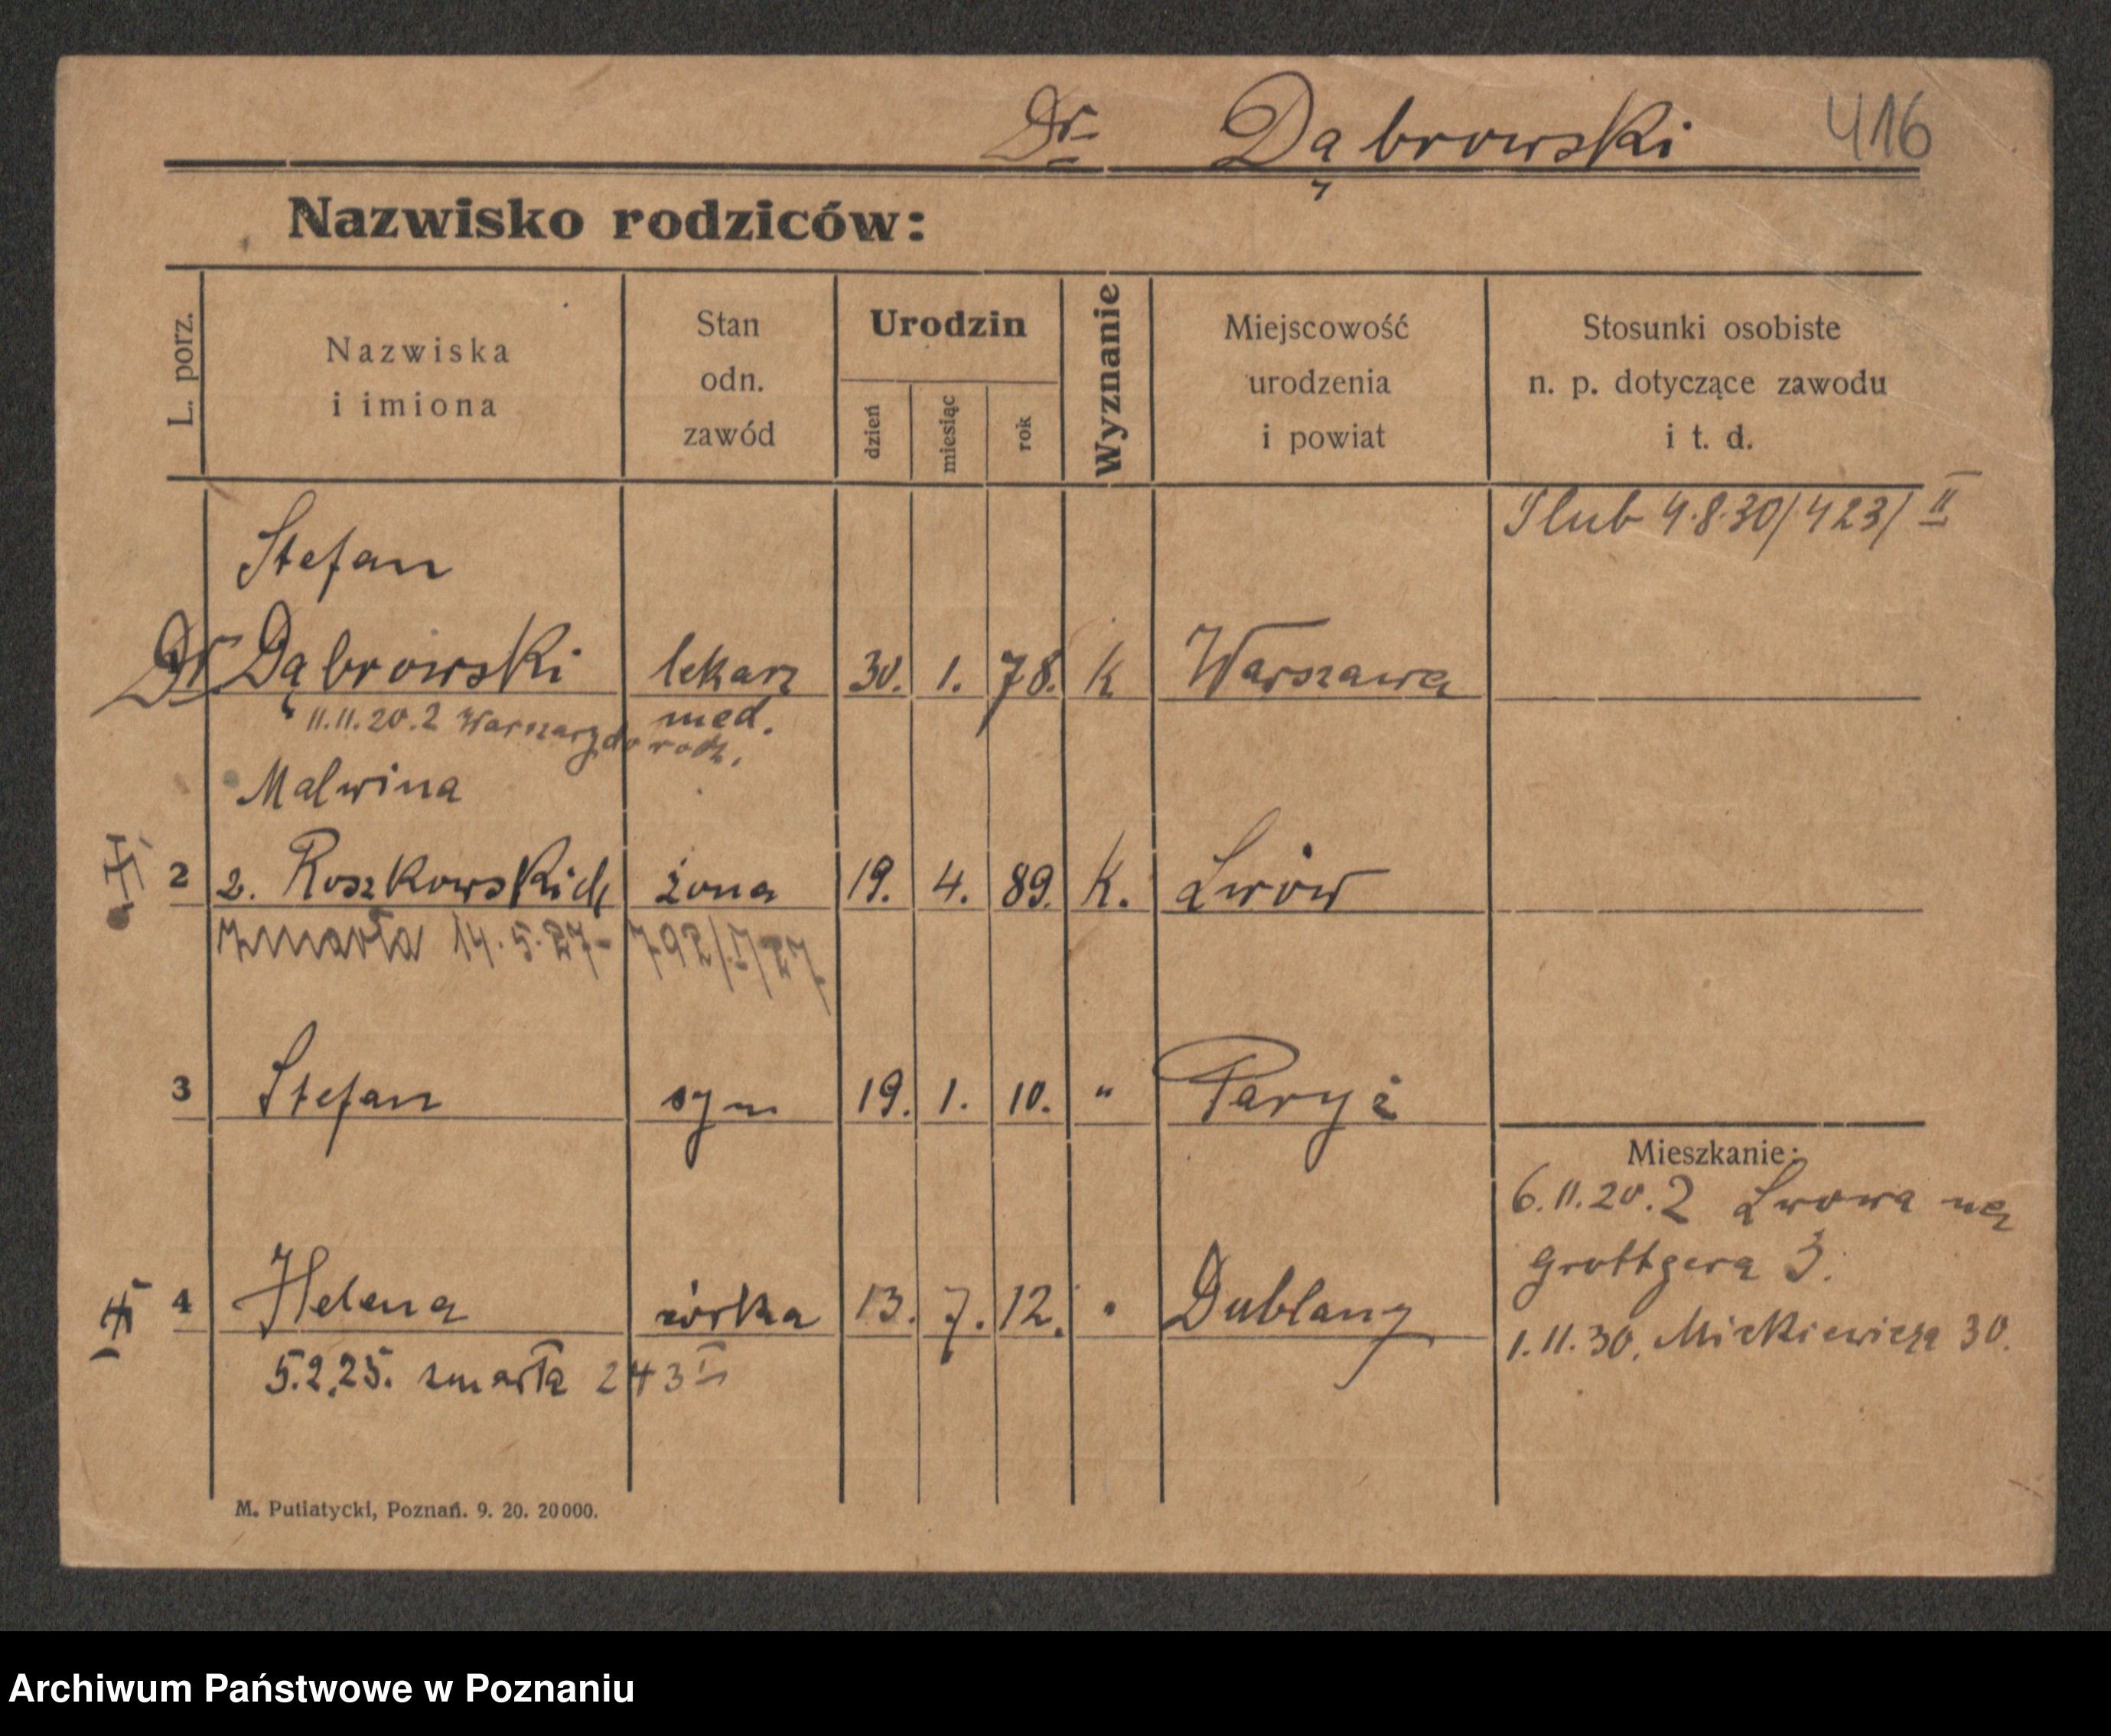 Dr. Dąbrowski 416
Nazwisko rodziców:
L. porz.
Nazwiska
i imiona
Stan
odn.
zawód
Urodzin
dzień
miesiąc
rok
Wyznanie
Miejscowość
urodzenia
i powiat
Stosunki osobiste
n. p. dotyczące zawodu
i t. d.
Ślub 4.8.30/423/II
Stefan
Dr Dąbrowski lekarz 30. 1. 78. k Warszawa
med.
11.11.20. z Warszawy do rodz.
Malwina
2 z. Roszkowskich żona 19. 4. 89. k. Lwów
zmarła 14.5.27- 792/I/27
3 Stefan syn 19. 1. 10. " Paryż
Mieszkanie:
6.11.20. z Lwowa na
Grottgera 3.
4 Helena córka 13. 7. 12. " Dublany
1.11.30. Mickiewicza 30.
5.2.25. zmarła 243 I
M. Putiatycki, Poznań. 9. 20. 20000.
Archiwum Państwowe w Poznaniu